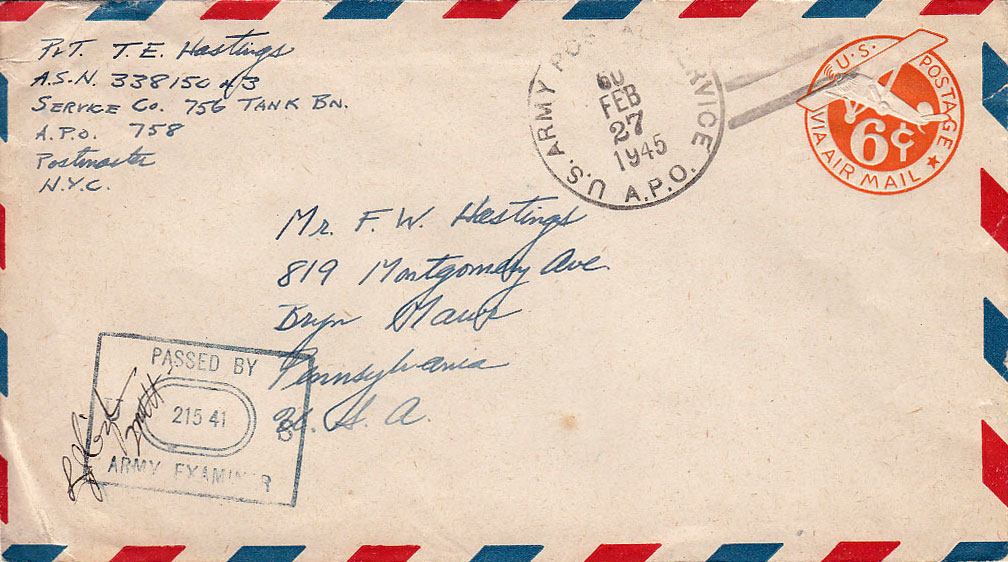 Pvt. T. E. Hastings
A.S.N. 338150 43
Service Co. 756 Tank Bn.
A.P.O. 758
Postmaster
N.Y.C.
U.S. ARMY POSTAL SERVICE
FEB
27
1945
A.P.O.
U.S. POSTAGE
6¢
VIA AIR MAIL
Mr. F. W. Hastings
819 Montgomery Ave.
Bryn Mawr
Pennsylvania
U. S. A.
PASSED BY
215 41
ARMY EXAMINER